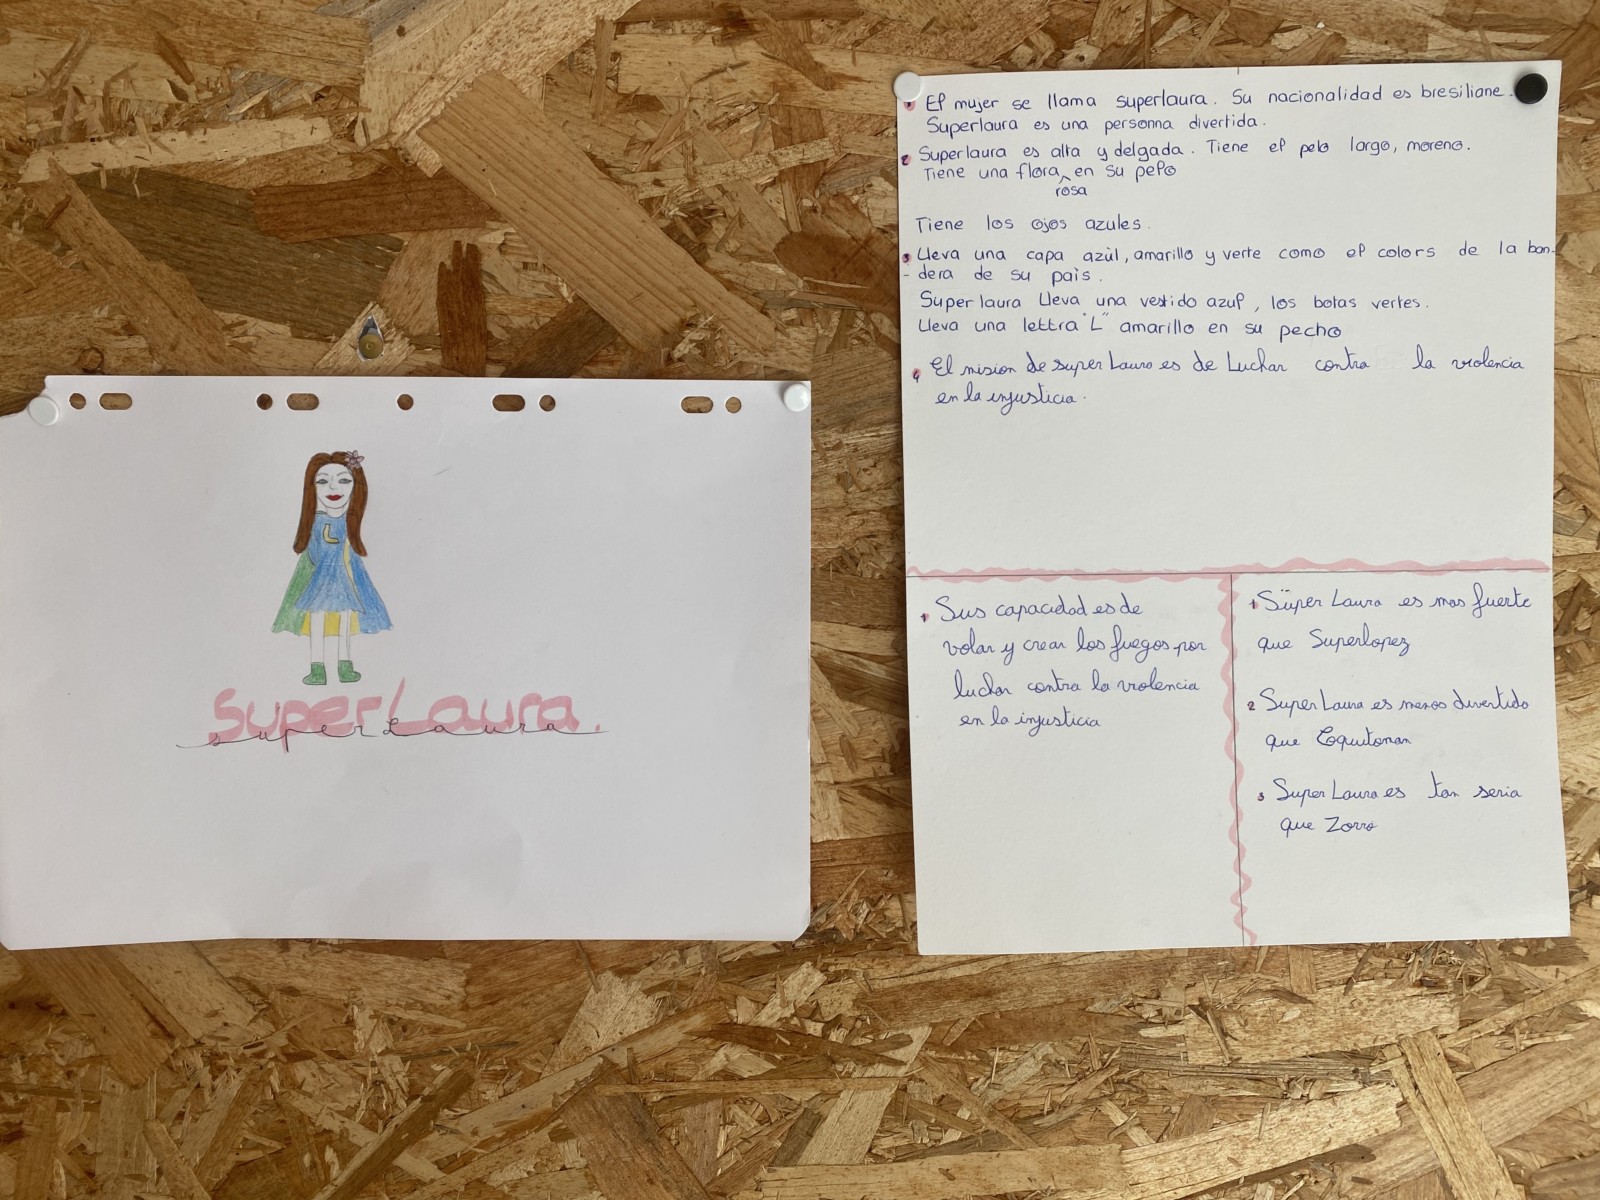 SuperLaura.
superLaura
1 El mujer se llama superlaura. Su nacionalidad es bresiliane.
Superlaura es una personna divertida.
2 Superlaura es alta y delgada. Tiene el pelo largo, moreno.
Tiene una flora rosa en su pelo
Tiene los ojos azules.
3 Lleva una capa azùl, amarillo y verte como el colors de la ban-
-dera de su paìs.
Superlaura Lleva una vestido azul, los botas vertes.
Lleva una lettra "L" amarillo en su pecho
4 El mision de super Laura es de Luchar contra la violencia
en la injusticia.
1 Sus capacidad es de
volar y crear los fuegos por
luchar contra la violencia
en la injusticia
1 Süper Laura es mas fuerte
que Superlopez
2 Super Laura es menos divertido
que Coquitoman
3 Super Laura es tan seria
que Zorro
L